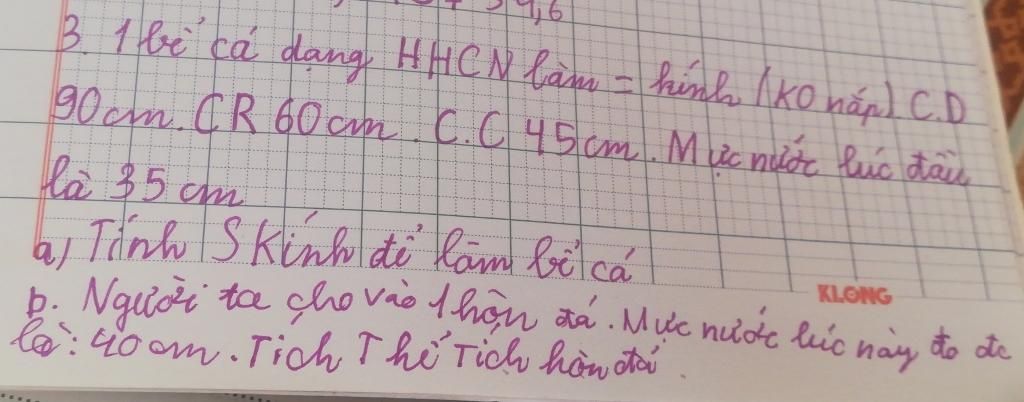 34,6
3. 1 bể cá dạng HHCN làm = kính (KO nắp) C.D
90cm. CR 60cm. C.C 45cm. Mực nước lúc đầu
là 35 cm
a) Tính S Kính để làm bể cá
KLONG
b. Người ta cho vào 1 hòn đá. Mực nước lúc này đo đc
là: 40cm. Tích Thể Tích hòn đá.